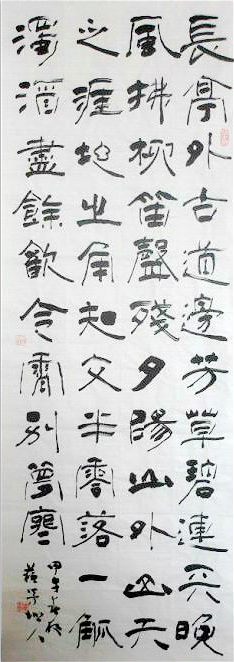 長亭外古道邊芳草碧連天晚
風拂柳笛聲殘夕陽山外山天
之涯地之角知交半零落一觚
濁酒盡餘歡今宵別夢寒
甲午